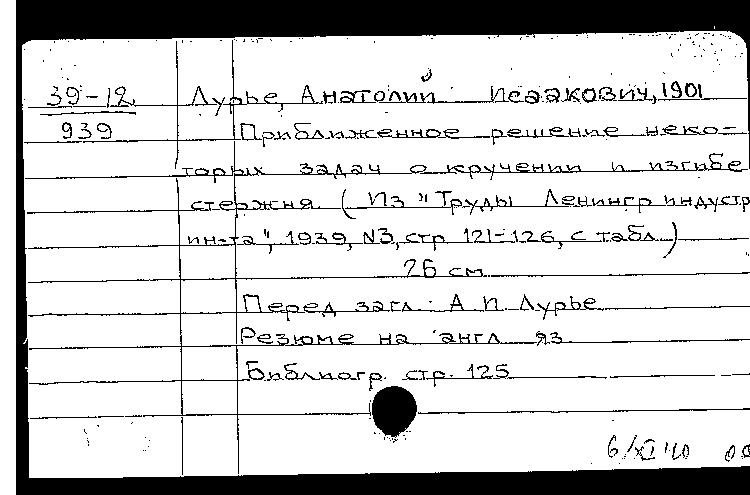 39-12 Лурье, Анатолий Исаакович, 1901
939 Приближенное решение неко-
торых задач о кручении и изгибе
стержня. (Из "Труды Ленингр индустр
ин-та", 1939, N3, стр. 121-126, с табл.)
26 см.
Перед загл.: А. И. Лурье
Резюме на англ яз.
Библиогр. стр. 125
6/XI 40